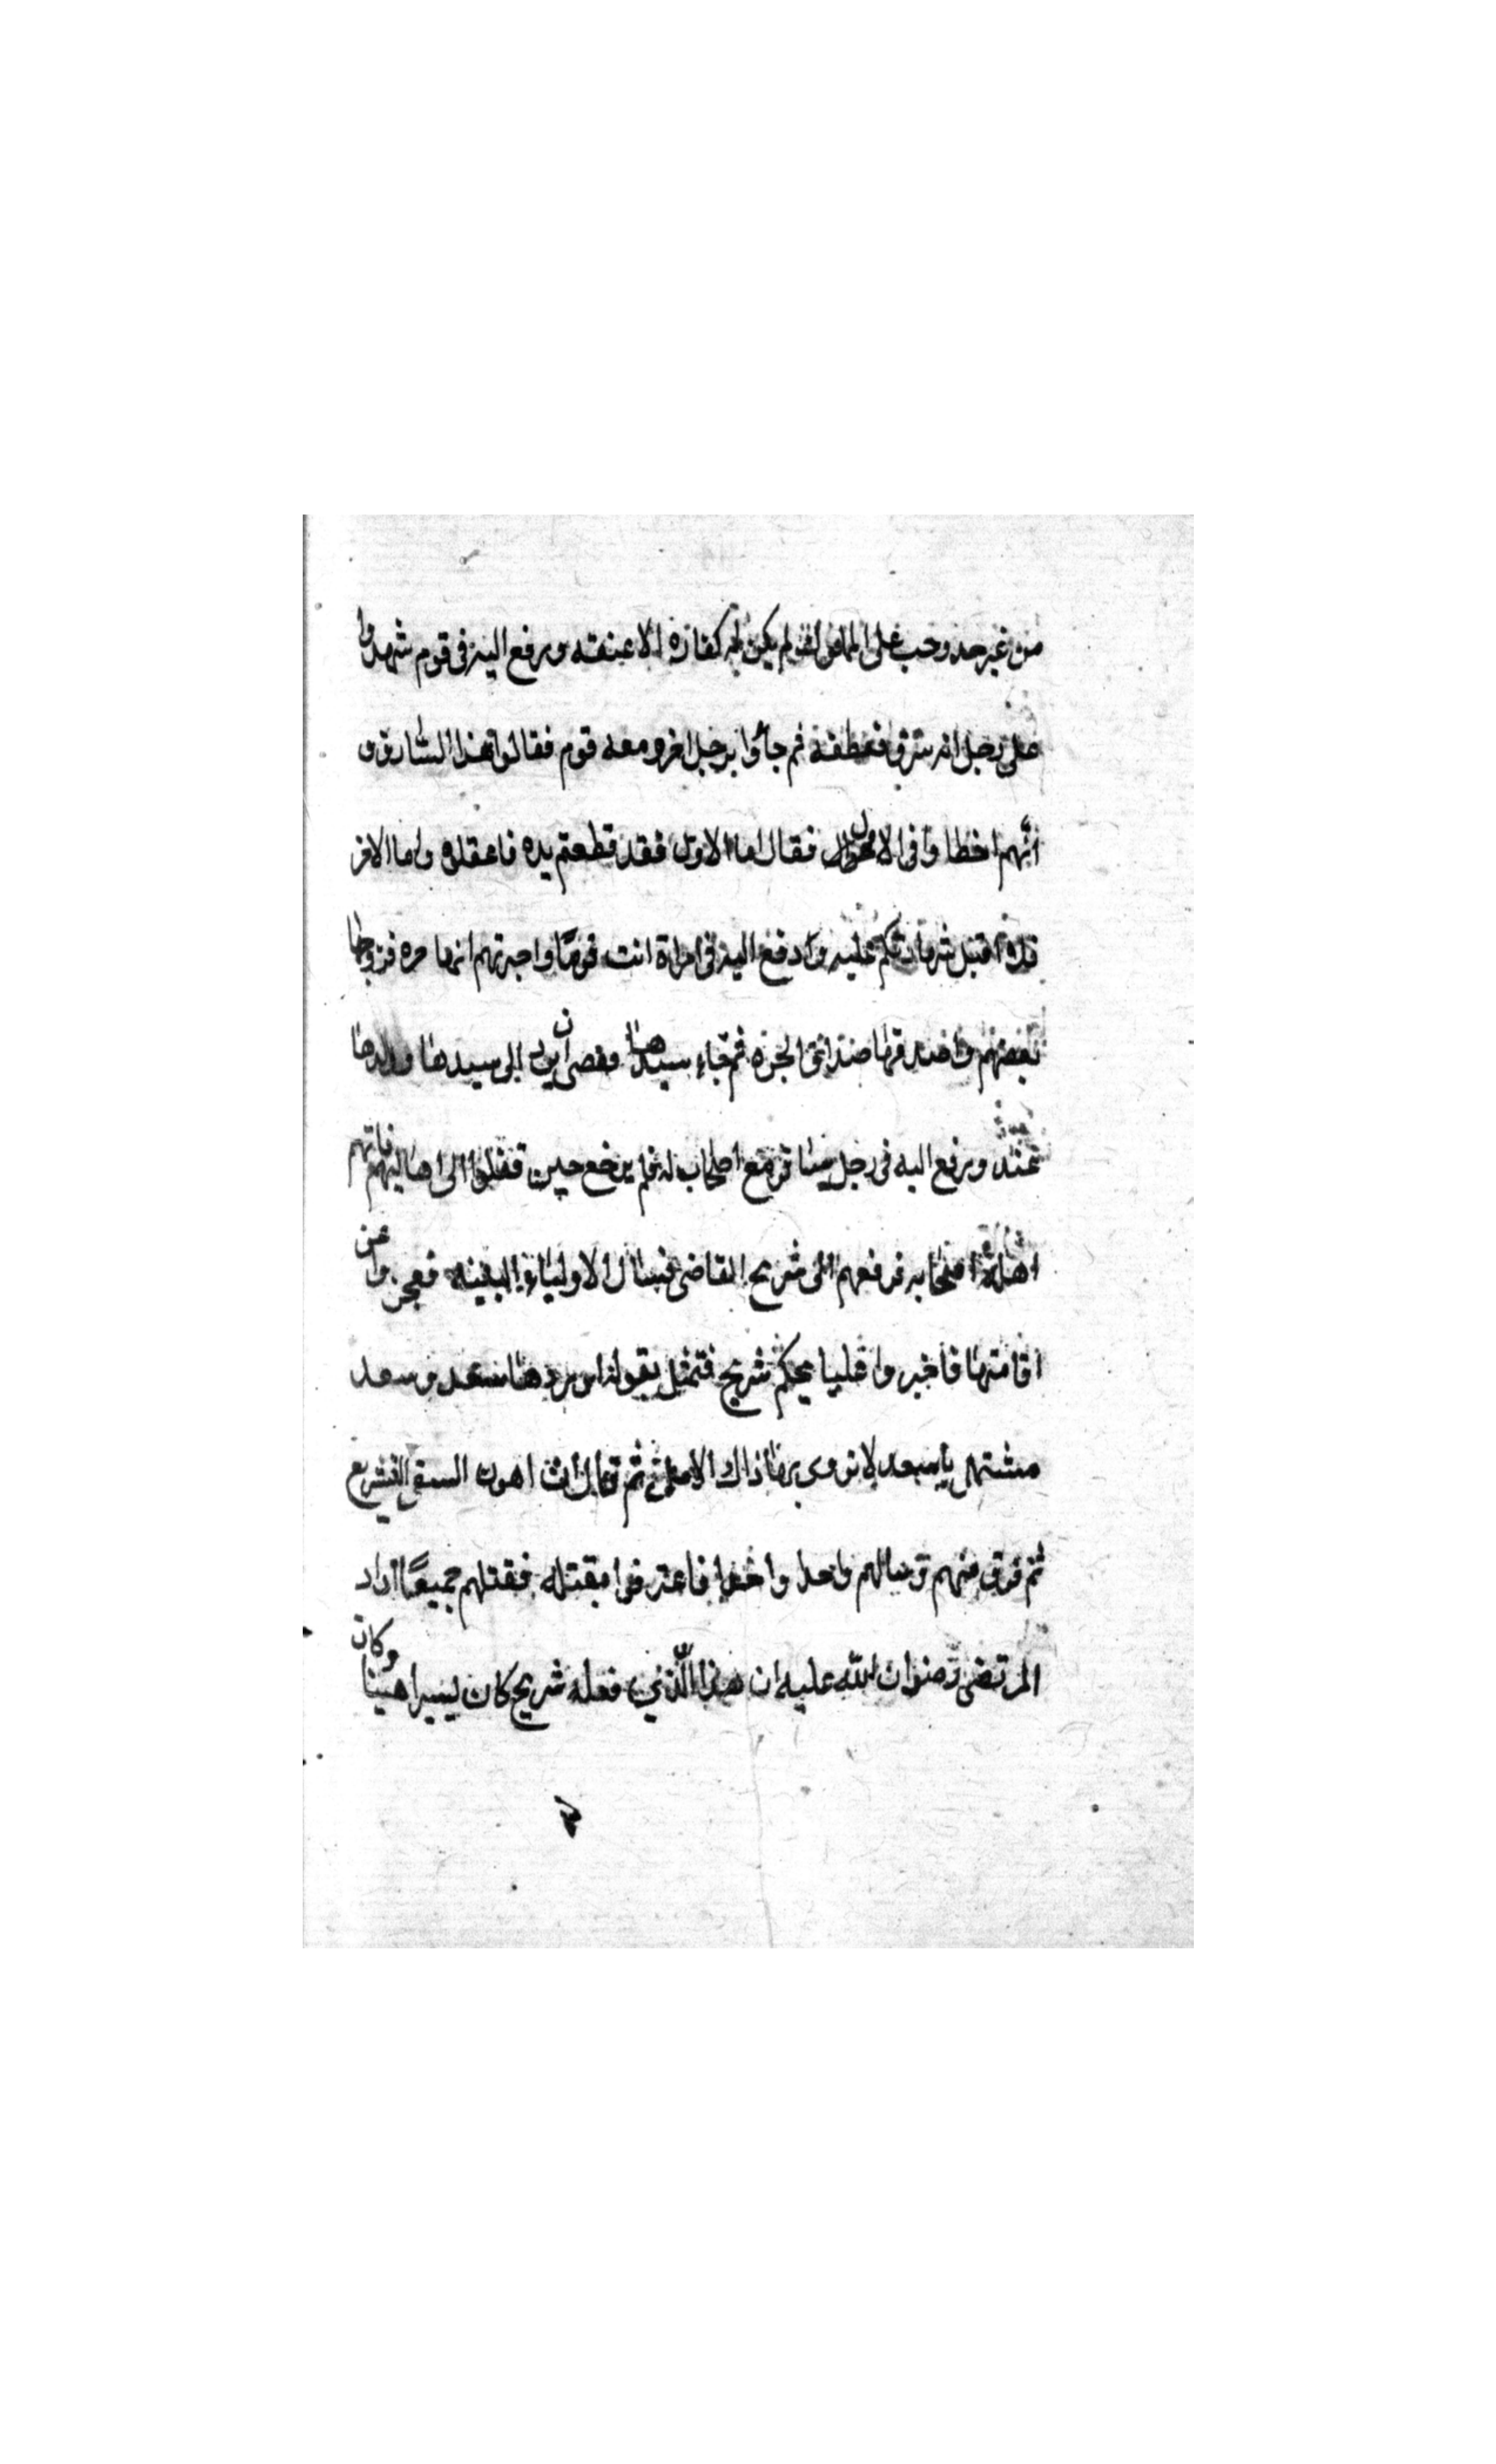 من غير حد وجب على المملوك لم يكن له كفارة الا عتقه ورفع اليه في قوم شهدوا
على رجل انه سرق فقطعه ثم جاؤا برجل اخر ومعه قوم فقالوا هذا السارق و
انهم اخطاوا في الاول فقال اما الاول فقد قطعتم يده فاعقلوه واما الاخر
فلا اقبل شهادتكم عليه ورفع اليه في امراة اتت قوما واخبرتهم انها حره فزوجها
بعضهم واصدقها صداق الحره ثم جاء سيدها فقضى ان يرد الى سيدها وولدها
ورفع اليه في رجل سافر مع اصحاب له فلم يرجع حين قفلوا الى اهاليهم فاتهم
اهله اصحابه فرفعهم الى شريح القاضي فسال الاولياء البينه فعجزوا عن
اقامتها فاخبروا عليا بحكم شريح فتمثل بقوله اوردها سعد وسعد
مشتمل يا سعد لا تروى بهذاك الابل ثم قال ان اهون السقي التشريع
ثم فرق منهم وسالهم واحدا واحدا فاعترفوا بقتله فقتلهم جميعا اراد
المرتضى رضوان الله عليه ان هذا الذي فعله شريح كان يسيرا هينا وكان